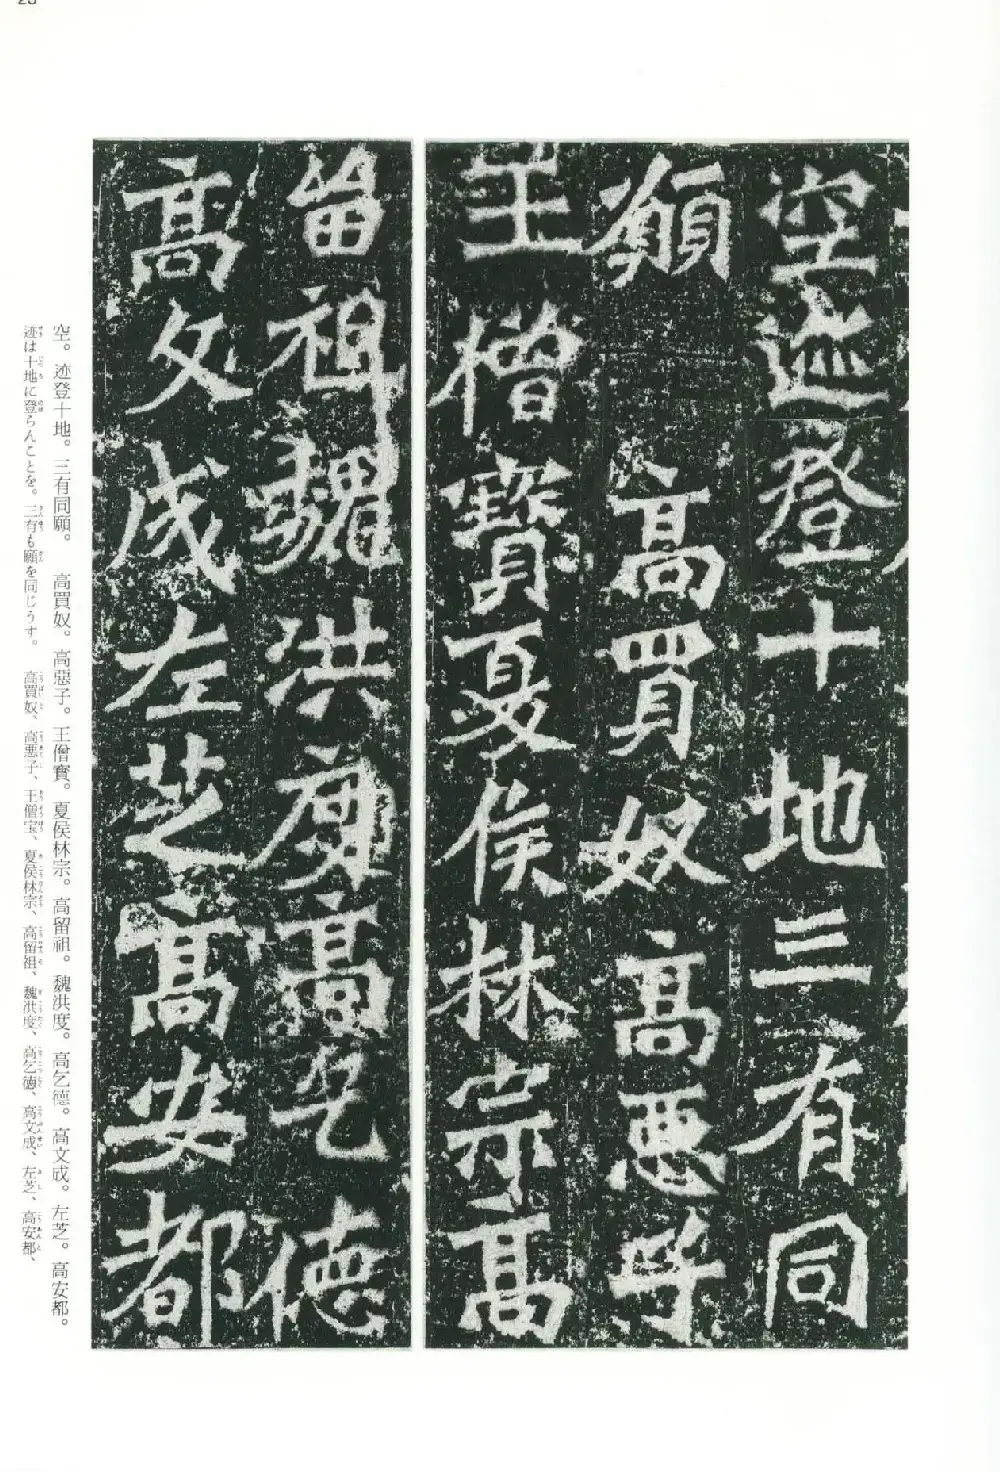 空迹登十地三有同
願 高買奴高惡子
王僧寶夏侯林宗高
留祖魏洪度高乞德
高文成左芝高安都
空。迹登十地。三有同願。 高買奴。高惡子。王僧寶。夏侯林宗。高留祖。魏洪度。高乞德。高文成。左芝。高安都。
迹は十地に登らんことを。三有も願を同じうす。 高買奴、高悪子、王僧宝、夏侯林宗、高留祖、魏洪度、高乞徳、高文成、左芝、高安都、